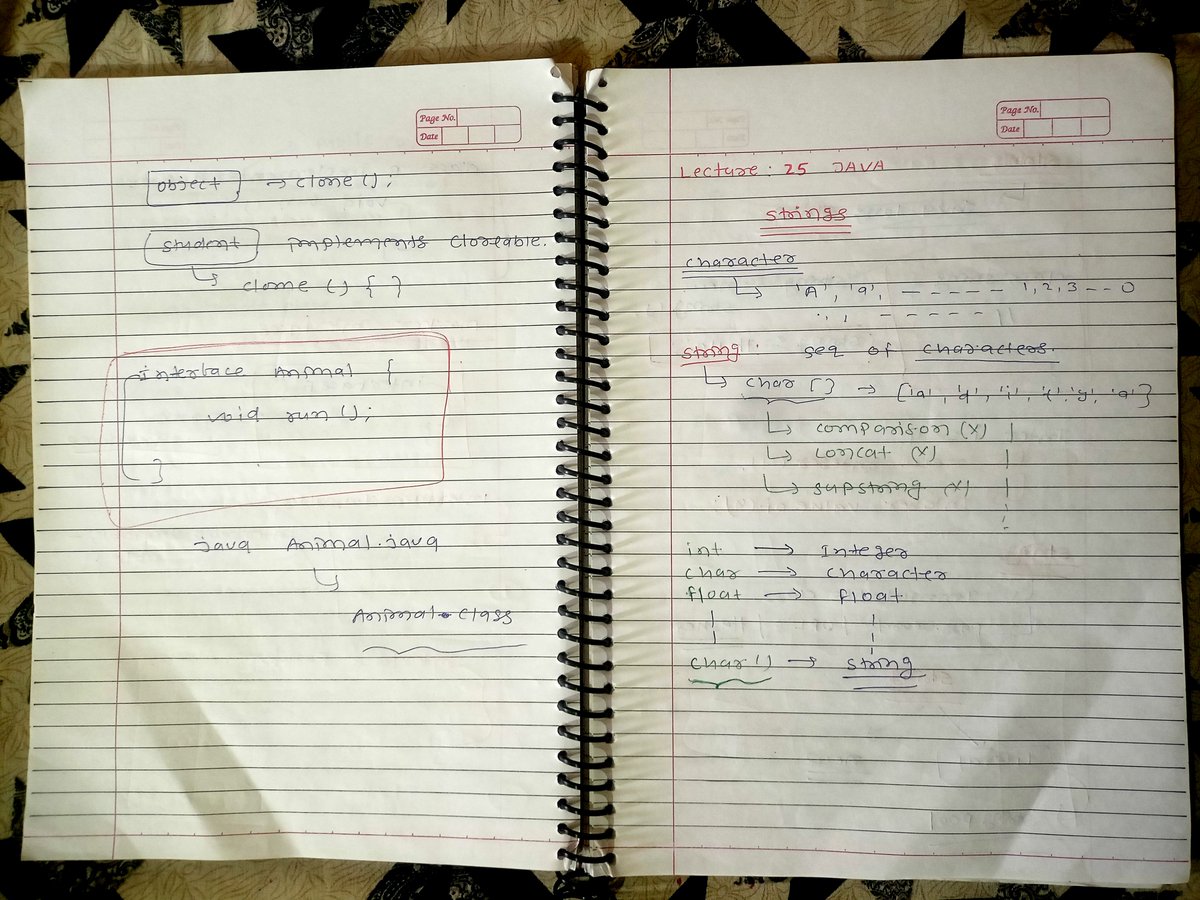 Page No.
Date
object → clone();
student implements Cloneable.
clone () { }
interface Animal {
void run();
}
java Animal.java
Animal.class
Page No.
Date
Lecture : 25 JAVA
strings
character
'A', 'a', ----- 1, 2, 3 -- 0
string : seq of characters.
char [] →
comparison (x)
concat (x)
substring (x)
int → Integer
char → character
float → float
char () → string